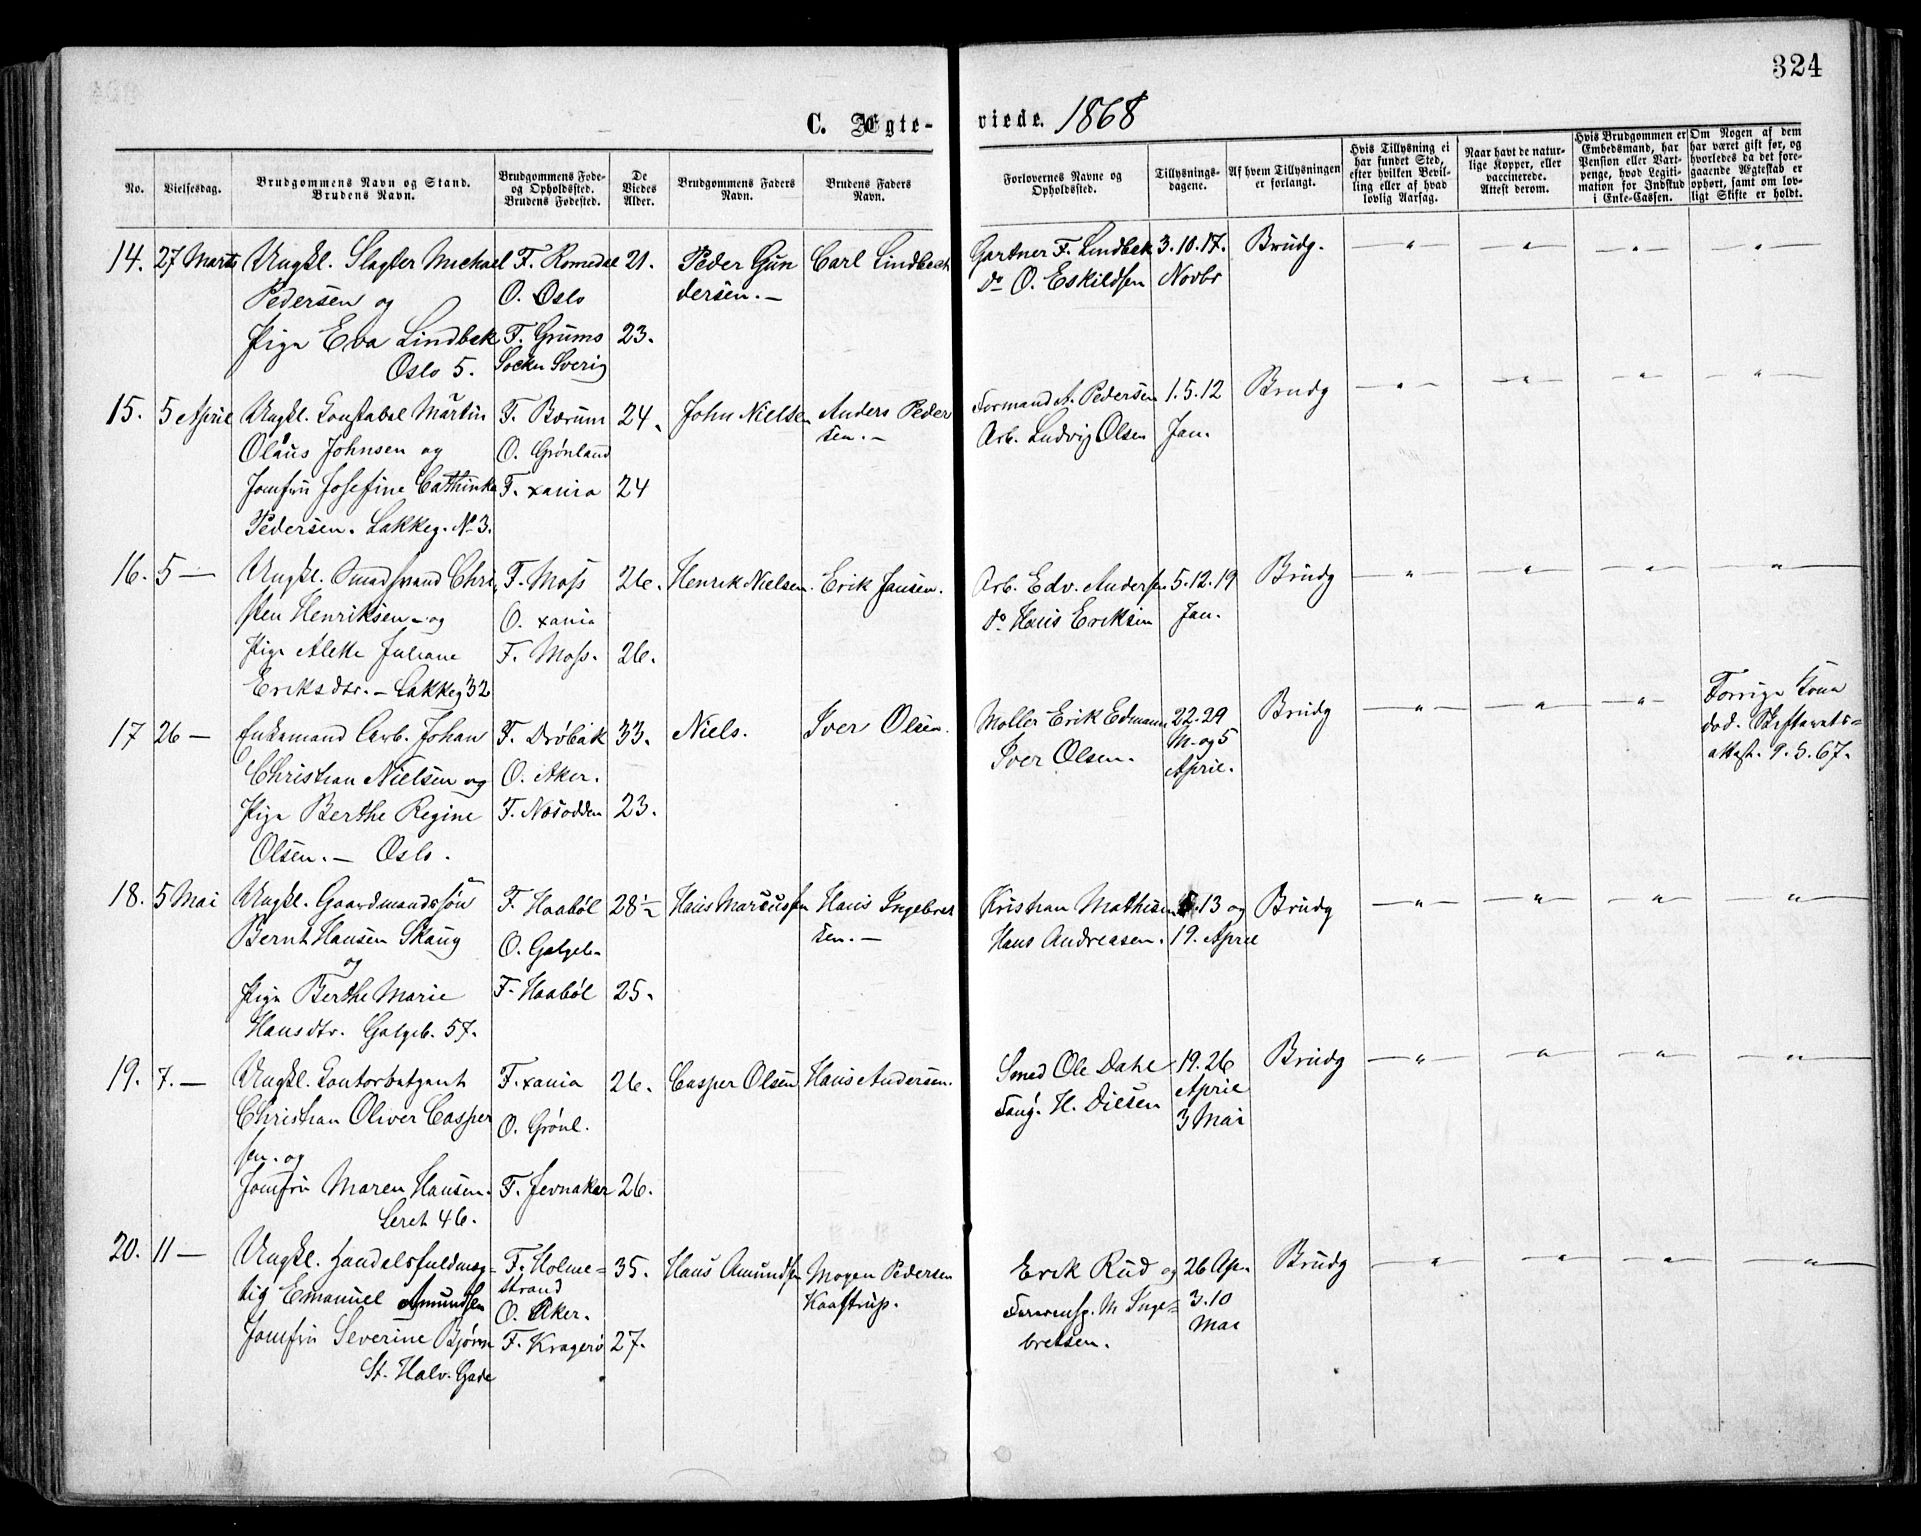 324
C. Ægte- viede. 1868
No.
Vielsesdag.
Brudgommens Navn og Stand.
Brudens Navn.
Brudgommens Føde-
og Opholdssted.
Brudens Fødested.
De
Viedes
Alder.
Brudgommens Faders
Navn.
Brudens Faders
Navn.
Forlovernes Navne og
Opholdssted.
Tillysnings-
dagene.
Af hvem Tillysningen
er forlangt.
Hvis Tillysning ei
har fundet Sted,
efter hvilken Bevil-
ling eller af hvad
lovlig Aarsag.
Naar havt de natur-
lige Kopper, eller
vaccinerede.
Attest derom.
Hvis Brudgommen er
Embedsmand, har
Pension eller Vart-
penge, hvad Legiti-
mation for Indskud
i Enke-Cassen.
Om Nogen af dem
har været gift før, og
hvorledes da det fore-
gaaende Ægteskab er
ophørt, samt om lov-
ligt Skifte er holdt.
14. 27 Marts Ungkl. Slagter Michael F. Romedal 21. Peder Gun Carl Lindbeck Gartner F. Lindbek 3.10.17. Brudg. — " — " — " — "
Pedersen og O. Oslo dersen. — do O. Eskildsen Novbr
Pige Eva Lindbek F. Grums 23.
Oslo 5. Sockn Sverig
15. 5 April Ungkl. Konstabel Martin F. Bærum 24. John Nielsen Anders Peder Formand A. Pedersen 1.5.12 Brudg — " — " — " — "
Olaus Johnsen og O. Grønland sen. — Arb. Ludvig Olsen Jan.
Jomfru Josefine Cathinka F. xania 24
Pedersen. Lakkeg. No 3.
16. 5 — Ungkl. Smedsvend Chri F. Moss 26. Henrik Nielsen. Erik Jansen. Arb. Edv. Andersen 5.12.19 Brudg — " — " — " — "
sten Henriksen - og O. xania do Hans Eriksen Jan.
Pige Alette Juliane F. Moss. 26.
Eriksdtr. — Lakkeg 32
17 26 — Enkemand Arb. Johan F. Drøbak 33. Niels. Iver Olsen. Møller Erik Edmann 22.29 Brudg — " — " — " — Forrige Kone
Christian Nielsen og O. Aker. Iver Olsen. M. og 5 død. Skifterets-
Pige Berthe Regine F. Næsodden 23. April. attest. 9.5.67.
Olsen. — Oslo.
18. 5 Mai Ungkl. Gaardmandssøn F. Haabøl 28½ Hans Marcussen Hans Ingebret Kristian Mathisen 5.13 og Brudg — " — " — " — "
Bernt Hansen Skaug O. Galgeb. sen. — Hans Andreasen. 19. April
og
Pige Berthe Marie F. Haabøl 25.
Hansdtr. Galgeb. 57.
19. 7. — Ungkl. Kontorbetjent F. xania 26. Casper Olsen Hans Andersen. Smed Ole Dahl 19.26 Brudg — " — " — " — "
Christian Oliver Casper O. Grønl. H. Diesen April
sen. og 3 Mai
Jomfru Maren Hansen. F. Jevnaker 26.
Leret 46.
20. 11 — Ungkl. Handelsfuldmæg- F. Holme- 35. Hans Amundsen Mogen Pedersen Erik Rud og 26 Ap. Brudg — " — " — " — "
tig Emanuel Amundsen strand Kaastrup. M Inge- 3.10
O. Aker. bretsen. Mai
Jomfru Severine Bjørn F. Kragerø 27.
St. Halv. Gade